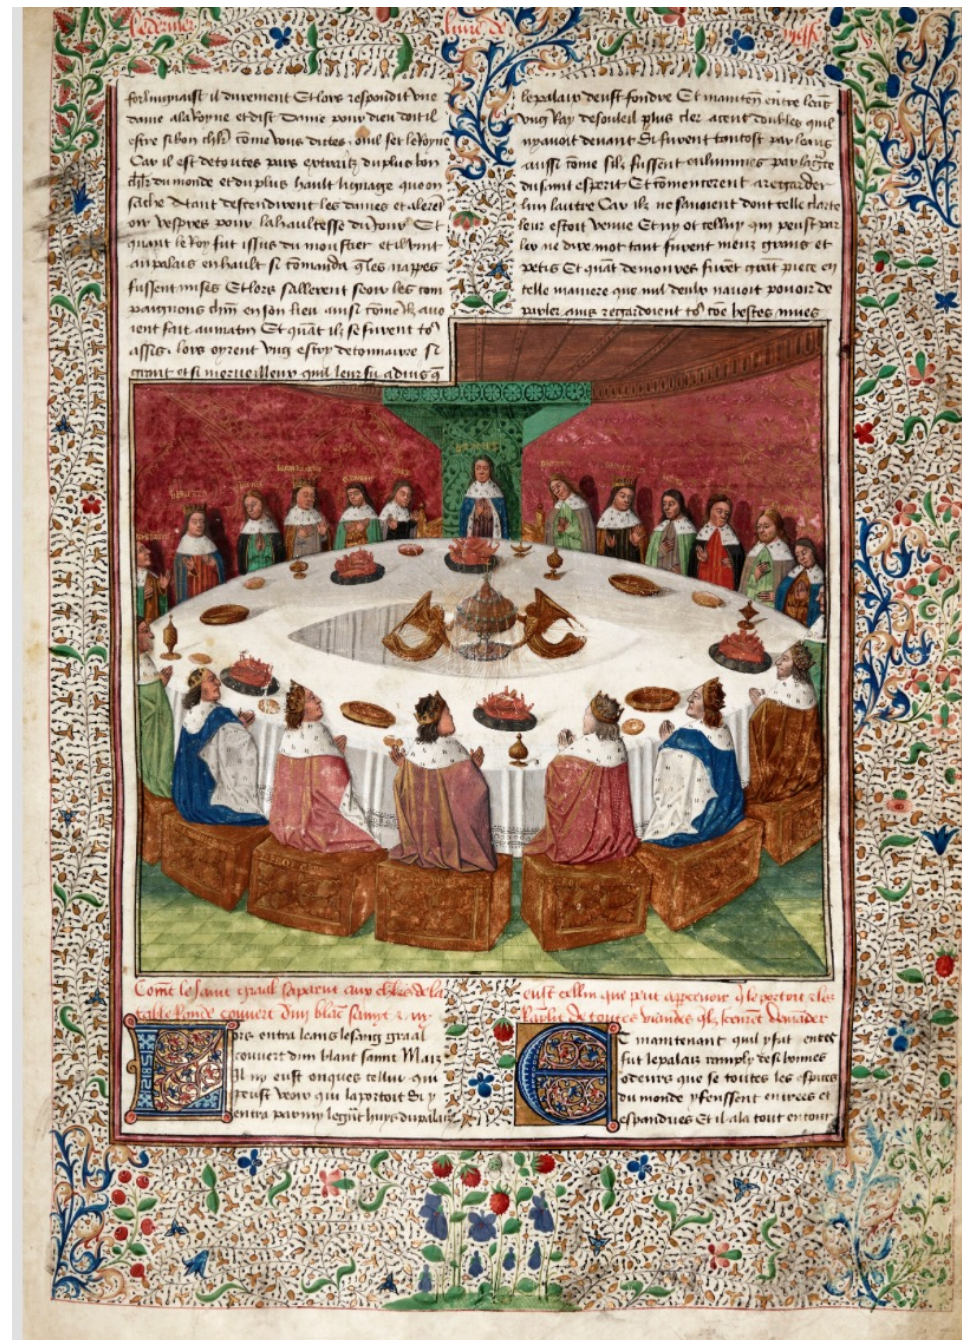 le dernier
livre de
messire
forlingnast il durement Et lors respondit une
dame a la royne et dist Dame pour dieu doit il
estre si bon chlr cõme vous dictes. ouil fet le Royne
Car il est de toutes pars extraitz du plus bon
chlr du monde et du plus hault lignage que on
sache Atant descendirent les dames et alerent
oir vespres pour la haultesse du jour Et
quant le Roy fut issus du moustier et il vint
au palais en hault si cõmanda q̃ les nappes
fussent mises Et lors sallerent seoir les com
paignons chũn en son lieu ainsi cõme ilz avo
ient fait au matin Et quãt ilz se furent to9
assis. lors oyrent ung estroy de tonnairre si
grant et si merveilleux quil leur fu advis q̃
le palaix deust fondre Et mainten̄ entra leãs
ung Ray de souleil plus cler acent doubles quil
nyavoit devant Si furent tantost par leans
aussi cõme silz fussent enlumines par la gr̃ce
du saint esperit Et cõmencerent a regarder
lun lautre Car ilz ne savoient dont telle clarte
leur estoit venue Et ny ot celluy qui peust par
ler ne dire mot tant furent menz grans et
petis Et quãt demoures furẽt grãt piece en
telle maniere que nul deulx navoit pouoir de
parler ains regardoient to9 cõe bestes mues
Comẽt le saint graal sapparut aux chlrs de la
table Ronde couvert dun blãc samyt z ny
eust cellui que peut appercevoir q̃ le portoit z les
Raemplit de toutes viandes q̃lz sceurẽt demãder
Lors entra leans le sang graal
couvert dun blant samit Mais
Il ny eust onques cellui qui
peust veoir qui la portoit Si y
entra parmy le grãt huys du palais
Et maintenant quil y fut entre
fut le palais remply de si bonnes
odeurs que se toutes les espices
du monde y feussent entrees et
espandues Et il ala tout entour